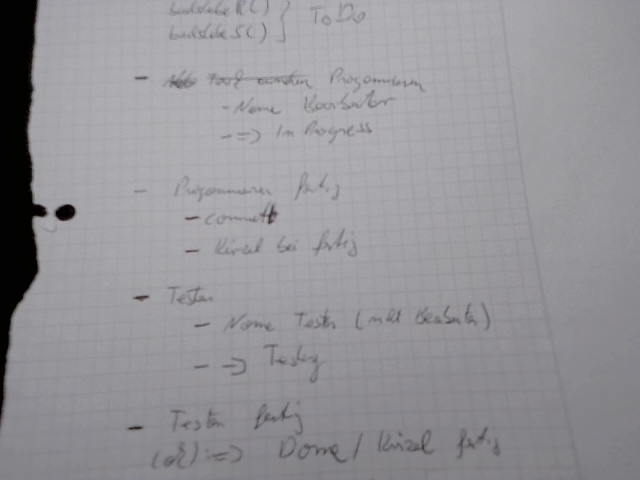 buchstabeR()
buchstabeS() } ToDo
- Programmieren
- Name Bearbeiter
- => In Progress
- Programmieren fertig
- commit
- Kürzel bei fertig
- Testen
- Name Tester (nicht Bearbeiter)
- => Testing
- Testen fertig
(ok) => Done / Kürzel fertig